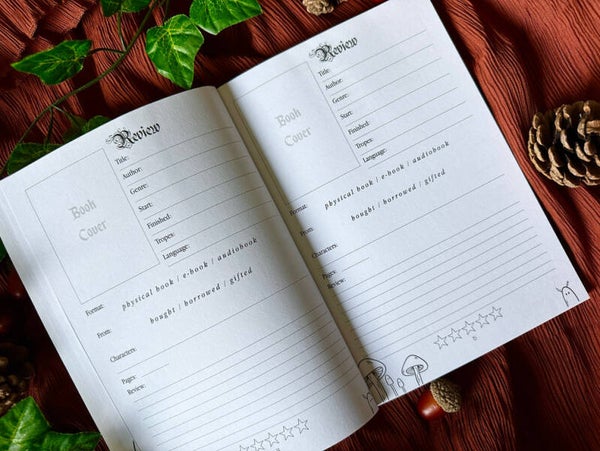 Review
Book
Cover
Title:
Author:
Genre:
Start:
Finished:
Tropes:
Language:
Format: physical book / e-book / audiobook
From: bought / borrowed / gifted
Characters:
Pages:
Review:
Review
Book
Cover
Title:
Author:
Genre:
Start:
Finished:
Tropes:
Language:
Format: physical book / e-book / audiobook
From: bought / borrowed / gifted
Characters:
Pages:
Review: